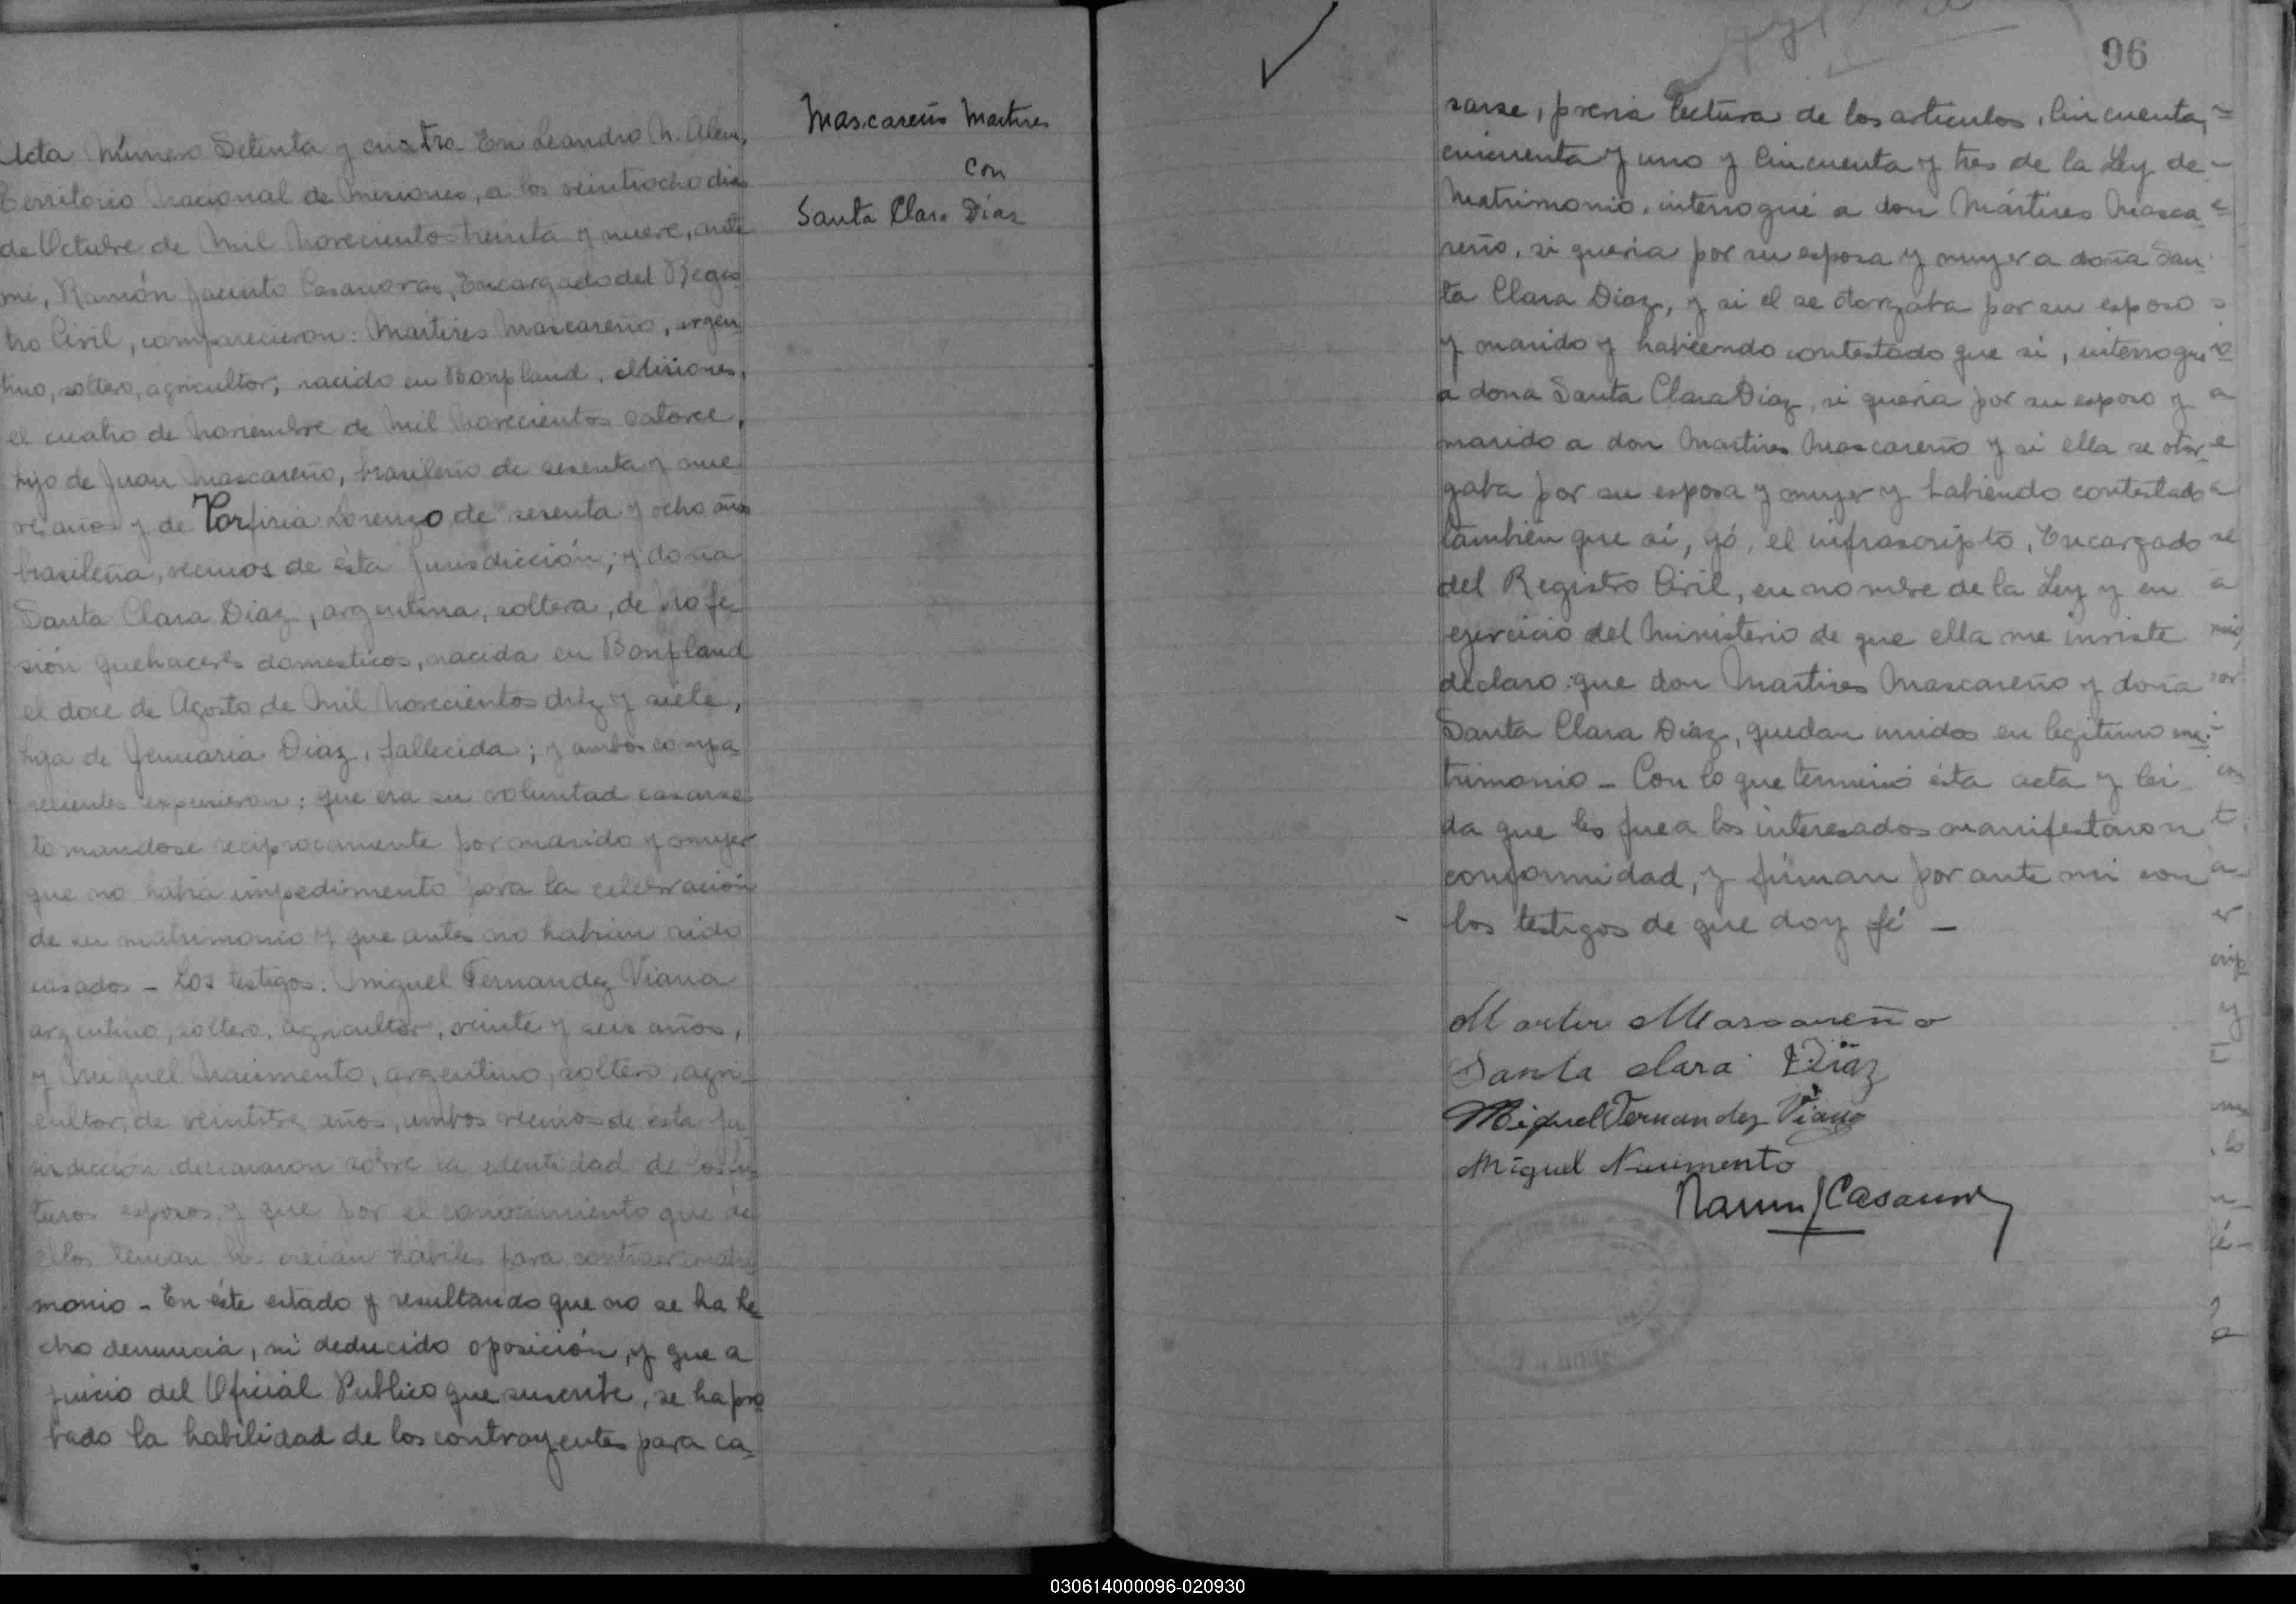 Acta Número Setenta y cuatro En Leandro N. Alem,
Territorio Nacional de Misiones, a los veintiocho dias
de Octubre de Mil Novecientos treinta y nueve, ante
mi, Ramón Jacinto Casanovas, Encargado del Regis
tro Civil, comparecieron: Martires Mascareño, argen
tino, soltero, agricultor, nacido en Bonpland, Misiones,
el cuatro de Noviembre de Mil Novecientos catorce,
hijo de Juan Mascareño, brasileño de sesenta y nue
ve años y de Porfiria Lorenzo de sesenta y ocho años
brasileña, vecinos de ésta jurisdicción; y doña
Santa Clara Diaz, argentina, soltera, de profe
sión quehaceres domesticos, nacida en Bonpland
el doce de Agosto de Mil Novecientos diez y siete,
hija de Jenuaria Diaz, fallecida; y ambos compa
recientes expusieron: que era su voluntad casarse
tomandose reciprocamente por marido y mujer
que no habia impedimento para la celebración
de su matrimonio y que antes no habian sido
casados - Los testigos: Miguel Fernandez Viana
argentino, soltero, agricultor, veinte y seis años,
y Miguel Nacimento, argentino, soltero, agri-
cultor, de veintitre años, ambos vecinos de esta ju
risdicción declararon sobre la identidad de los fu-
turos esposos, y que por el conocimiento que de
ellos tenian lo creian habiles para contraer matri
monio - En éste estado y resultando que no se ha he
cho denuncia, ni deducido oposición, y que a
juicio del Oficial Publico que suscribe, se ha pro
bado la habilidad de los contrayentes para ca-
Mascareño Martires
con
Santa Clara Diaz
96
sarse, previa lectura de los articulos, Cincuenta,
cincuenta y uno y Cincuenta y tres de la Ley de
Matrimonio, interrogué a don Mártires Masca
reño, si queria por su esposa y mujer a doña San
ta Clara Diaz, y si el se otorgaba por su esposo
y marido y habiendo contestado que si, interrogue
a dona Santa Clara Diaz, si queria por su esposo y
marido a don Martires Mascareño y si ella se otor-
gaba por su esposa y mujer y habiendo contestado
también que sí, yó, el infrascripto, Encargado
del Registro Civil, en nombre de la Ley y en
ejercicio del Ministerio de que ella me inviste
declaro: que don Martires Mascareño y doña
Santa Clara Diaz, quedan unidos en legitimo ma-
trimonio - Con lo que terminó ésta acta y lei
da que les fue a los interesados manifestaron
conformidad, y firman por ante mi con
los testigos de que doy fé -
Martir Mascareño
Santa Clara Diaz
Miguel Fernandez Viana
Miguel Nacimento
Ramón J Casanov
030614000096-020930